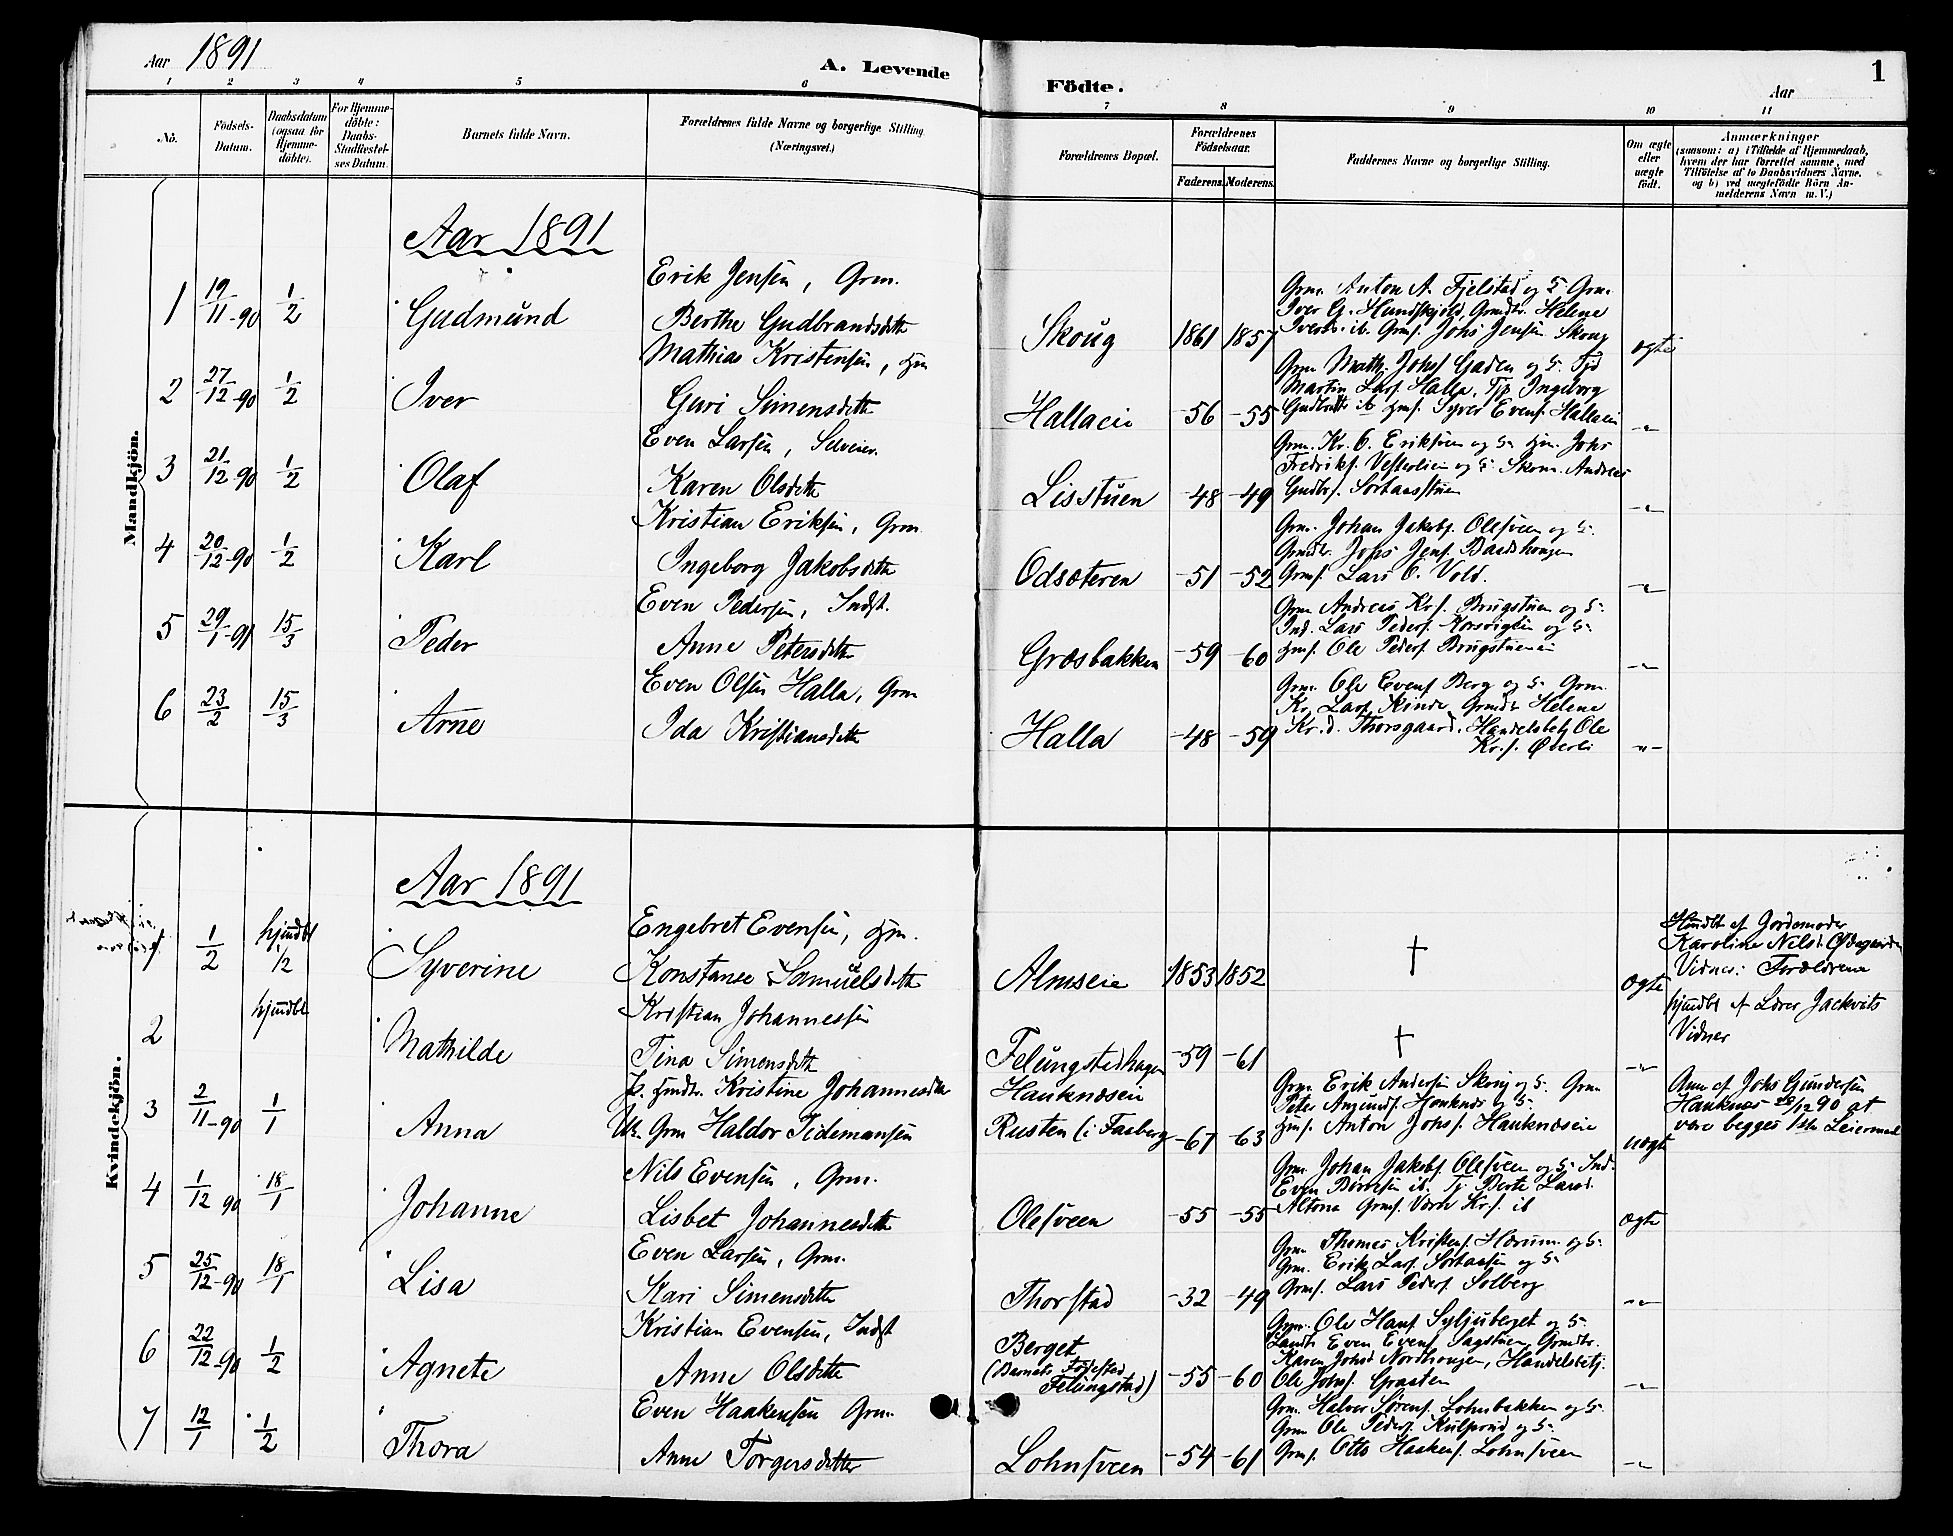 Aar 1891
A. Levende
Födte.
1
Aar
1 2 3 4 5 6 7 8 9 10 11
No.
Födsels-Datum.
Daabsdatum (ogsaa for Hjemme-döbte).
For Hjemme-döbte: Daabs-Stadfæstel-ses Datum.
Barnets fulde Navn.
Forældrenes fulde Navne og borgerlige Stilling (Næringsvei.)
Forældrenes Bopæl.
Forældrenes Födselsaar.
Faderens. Moderens.
Faddernes Navne og borgerlige Stilling.
Om ægte eller uægte födt.
Anmærkninger
(saasom: a) i Tilfælde af Hjemmedaab,
hvem der har forrettet samme, med
Tilföielse af to Daabsvidners Navne,
og b) ved uægtefödte Börn An-
melderens Navn m. V.)
Mandkjön.
Aar 1891
1 19/11-90 1/2 Gudmund
Erik Jensen, Grm.
Berthe Gudbrandsdtr
Skoug 1861 1857
Grm. Anton A. Fjelstad og 5- Grm.
Iver G. Hundskjold, Grmdtr. Helene
Iversd. ib. Grms. Johs Jensen Skoug
ægte
2 27/12-90 1/2 Iver
Mathias Kristensen, Hjm
Guri Simensdtr
Hallaeie -56 -55
Grm Math. Johs. Gaden og 5- Tjd
Martin Lars. Halla, Tjp Ingeborg
Gudbrdtr ib Hjms. Syver Evens. Hallaeie
-"-
3 21/12-90 1/2 Olaf
Even Larsen, Selveier
Karen Olsdtr
Lisstuen -48 -49
Grm. Kr. O. Eriksveen og 5- Hjm. Johs
Fredriks. Vesterlien og 5- Skom. Andreas
Gudbrs. Sortaasstuen
-"-
4 20/12-90 1/2 Karl
Kristian Eriksen, Grm.
Ingeborg Jakobsdtr
Odsæteren -51 -52
Grm. Johan Jakobs. Olesveen og 5-
Grmdtr. Johs Jens. Baadshaugen
Grms. Lars O. Vold.
-"-
5 29/1-91 15/3 Peder
Even Pedersen, Indst.
Anne Petersdtr
Græsbakken -59 -60
Grm Andreas Kr.s. Brugstuen og 5-
Ind. Lars Peders. Korsvigen og 5-
Hjms. Ole Peders. Brugstueneie
-"-
6 23/2 15/3 Arne
Even Olsen Halla, Grm
Ida Kristiansdtr
Halla -48 -59
Grm. Ole Evens Berg og 5- Grm.
Kr. Lars. Kinde, Grmdtr Helene
Kr.d. Thorsgaard. Handelsbetj. Ole
Kr.s. Øverli
-"-
Kvindekjön.
Aar 1891
1 1/2 hjmdbt 1/2 Syverine
Engebret Evensen, Hjm.
Konstanse Samuelsdtr
Almseie 1853 1852
†
Ægte
Hmdbt af Jordemoder
Karoline Nilsd.
Vidner: Forældrene
2 hjmdbt Mathilde
Kristian Johannessen
Tina Simensdtr
Felungstadhagen -59 -61
†
-"-
hjmdbt af Lærer Jackvits
Vidner
3 2/11-90 1/1 Anna
P. Hmdtr. Kristine Johannesdtr
U. Grm Haldor Tidemansen
Hauknæseie
Rusten (i Faaberg -67 -63
Grm. Erik Andersen Skoug og 5- Grm
Peter Amunds. Hauknæs og 5-
Hjms. Anton Johs. Hauknæseie
uægte
Anm af Johs Gundersen
Hauknæs 28/12 90 at
være begges 1ste Leiermaal
4 1/12 90 18/1 Johanne
Nils Evensen, Grm.
Lisbet Johannesdtr
Olesveen -55 -55
Grm Johan Jakobs. Olesveen og 5- Ind.
Even Børresen ib. Tj. Berte Larsd.
Altona Grms. Kr.s. ib
Ægte
5 25/12-90 18/1 Lisa
Even Larsen, Grm.
Kari Simensdtr
Thorstad -32 -49
Grm Thomas Kristens. Hærum og 5-
Grm. Erik Lars. Sortaasen og 5-
Grms. Lars Peders. Solberg
-"-
6 22/12-90 1/2 Agnete
Kristian Evensen, Indst
Anne Olsdtr
Berget
(Barnets Fødested
Felungstad) -55 -60
Grm. Ole Hans. Syljuberget og 5-
Landh. Even Evens. Sagstuen, Grmdtr.
Karen Johsd Nordhaugen, Handelsbetj.
Ole Johs. Graaten
-"-
7 12/1 1/2 Thora
Even Haakensen Grm.
Anne Torgersdatter
Lohnsveen -54 -61
Grm. Halvor Sørens. Lohnbakken og 5-
Grm Ole Peders. Kulprud og 5-
Grms. Otto Haakens. Lohnsveen
-"-